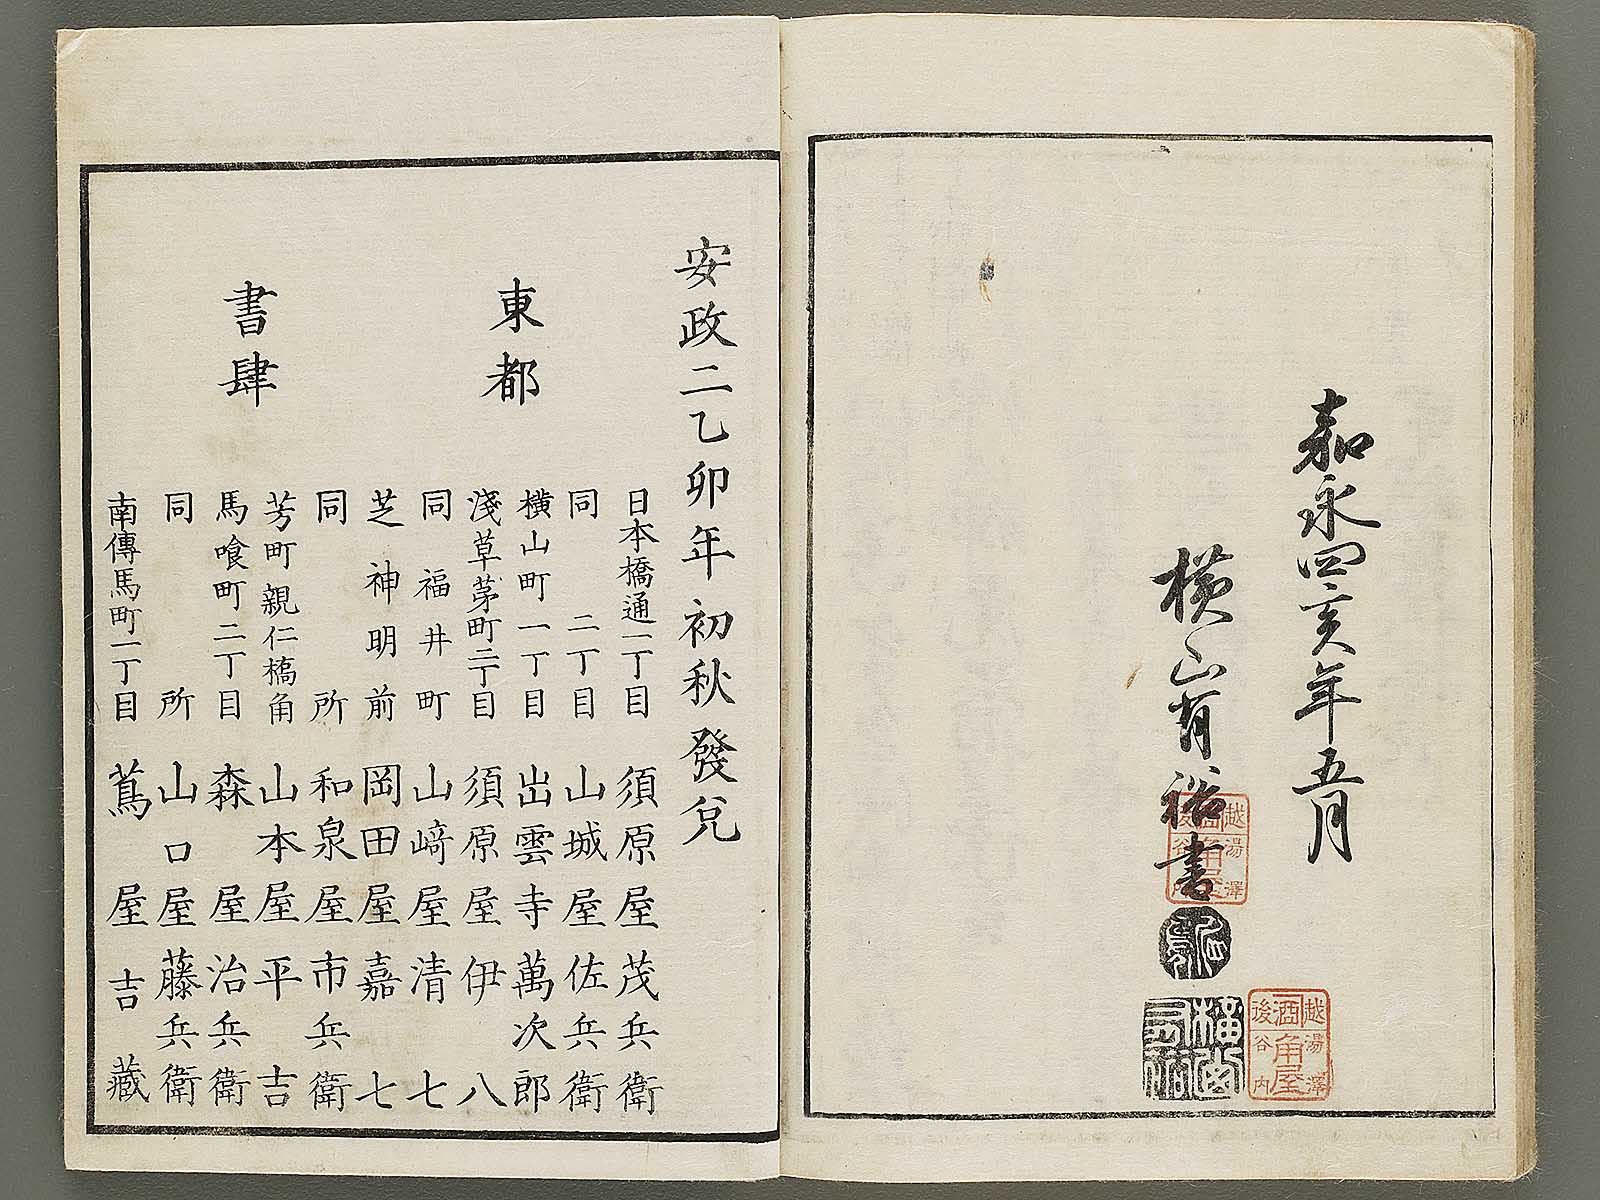 嘉永四亥年五月
横山有裕書
越後湯沢谷内
酒角屋
越後湯澤谷内
酒角屋
安政二乙卯年初秋發兌
東都
書肆
日本橋通一丁目 須原屋茂兵衛
同 二丁目 山城屋佐兵衛
横山町一丁目 出雲寺萬次郎
淺草茅町二丁目 須原屋伊八
同福井町 山﨑屋清七
芝神明前 岡田屋嘉七
同所 和泉屋市兵衛
芳町親仁橋角 山本屋平吉
馬喰町二丁目 森屋治兵衛
同所 山口屋藤兵衛
南傳馬町一丁目 蔦屋吉藏